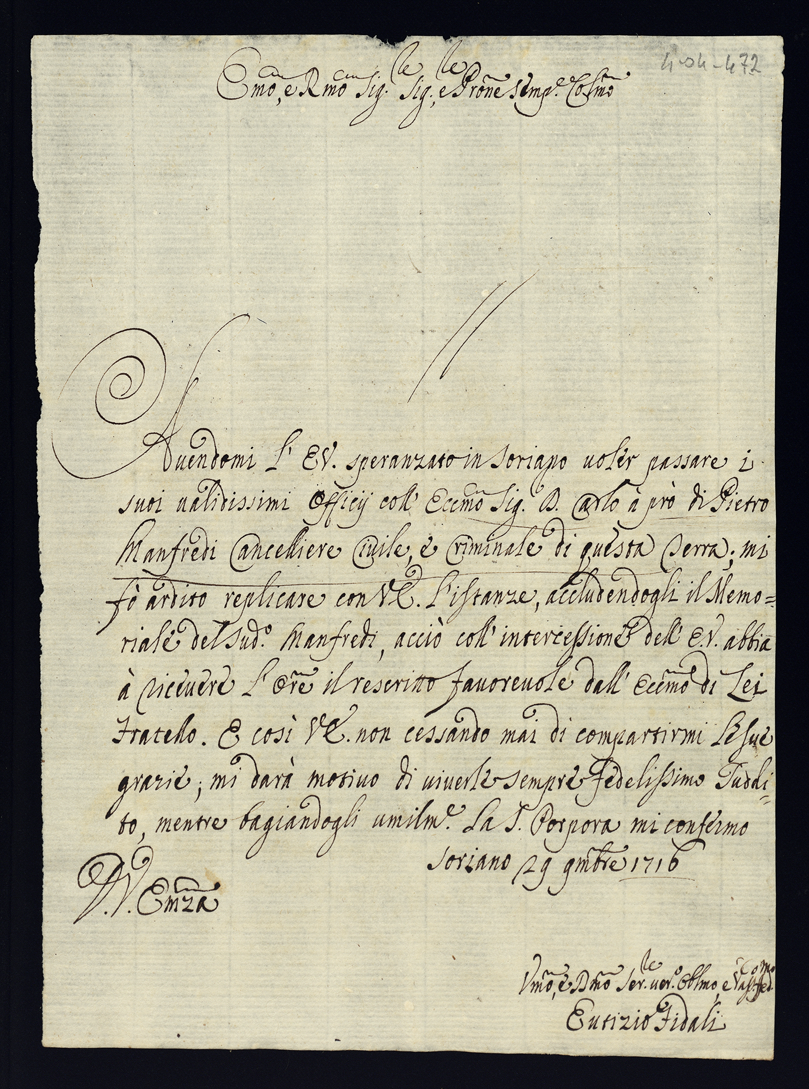 4-04-472
Emo, e Rmo Sig.re Sig.re, e Prone Semp.e Colmo
Avendomi l'E.V. speranzato in Soriano voler passare i
suoi validissimi Officij coll'Eccmo Sig. D. Carlo à prò di Pietro
Manfredi Cancelliere Civile, e Criminale di questa Terra; mi
fò ardito replicare con V.E. l'istanze, accludendogli il Memo=
riale del Sud.o Manfredi, acciò coll'intercessione dell'E.V. abbia
à ricevere l'Ore il rescritto favorevole dall'Eccmo di Lei
Fratello. E così V.E. non cessando mai di compartirmi le sue
grazie; mi darà motivo di viverle sempre fedelissimo Suddi=
to, mentre bagiandogli umilm.e la S. Porpora mi confermo
Soriano 29 9mbre 1716
D.V. Emza
Vmo, e Dmo Ser.re ver.o Obbmo, e Vass.
Eutizio Fidali